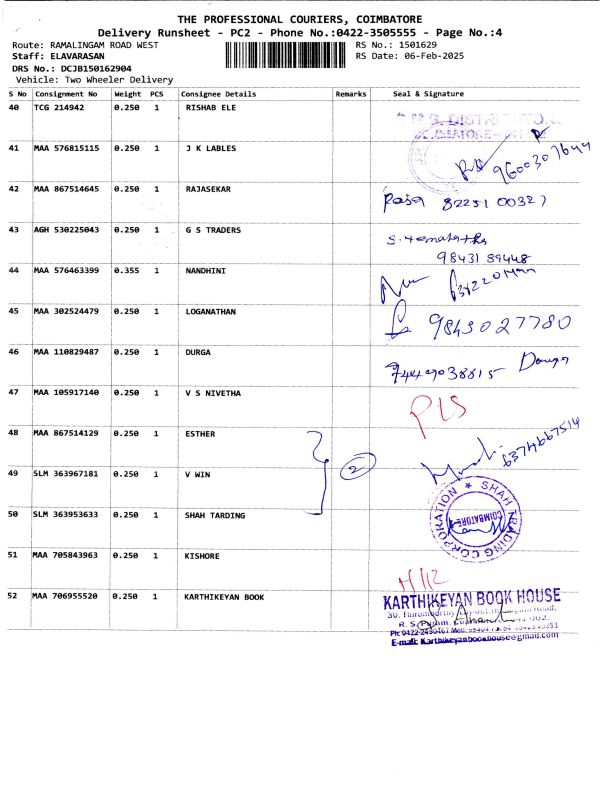 THE PROFESSIONAL COURIERS, COIMBATORE
Delivery Runsheet - PC2 - Phone No.:0422-3505555 - Page No.:4
Route: RAMALINGAM ROAD WEST RS No.: 1501629
Staff: ELAVARASAN RS Date: 06-Feb-2025
DRS No.: DCJB150162904
Vehicle: Two Wheeler Delivery
S No Consignment No Weight PCS Consignee Details Remarks Seal & Signature
40 TCG 214942 0.250 1 RISHAB ELE
41 MAA 576815115 0.250 1 J K LABLES 9600307644
42 MAA 867514645 0.250 1 RAJASEKAR
43 AGH 530225043 0.250 1 G S TRADERS
9843189448
44 MAA 576463399 0.355 1 NANDHINI
45 MAA 302524479 0.250 1 LOGANATHAN 9843027780
46 MAA 110829487 0.250 1 DURGA
47 MAA 105917140 0.250 1 V S NIVETHA PLS
48 MAA 867514129 0.250 1 ESTHER 6374667514
49 SLM 363967181 0.250 1 V WIN 2
50 SLM 363953633 0.250 1 SHAH TARDING SHAH TRADING CORPORATION COIMBATORE
51 MAA 705843963 0.250 1 KISHORE H/12
52 MAA 706955520 0.250 1 KARTHIKEYAN BOOK KARTHIKEYAN BOOK HOUSE
E-mail: Karthikeyanbookhouse@gmail.com